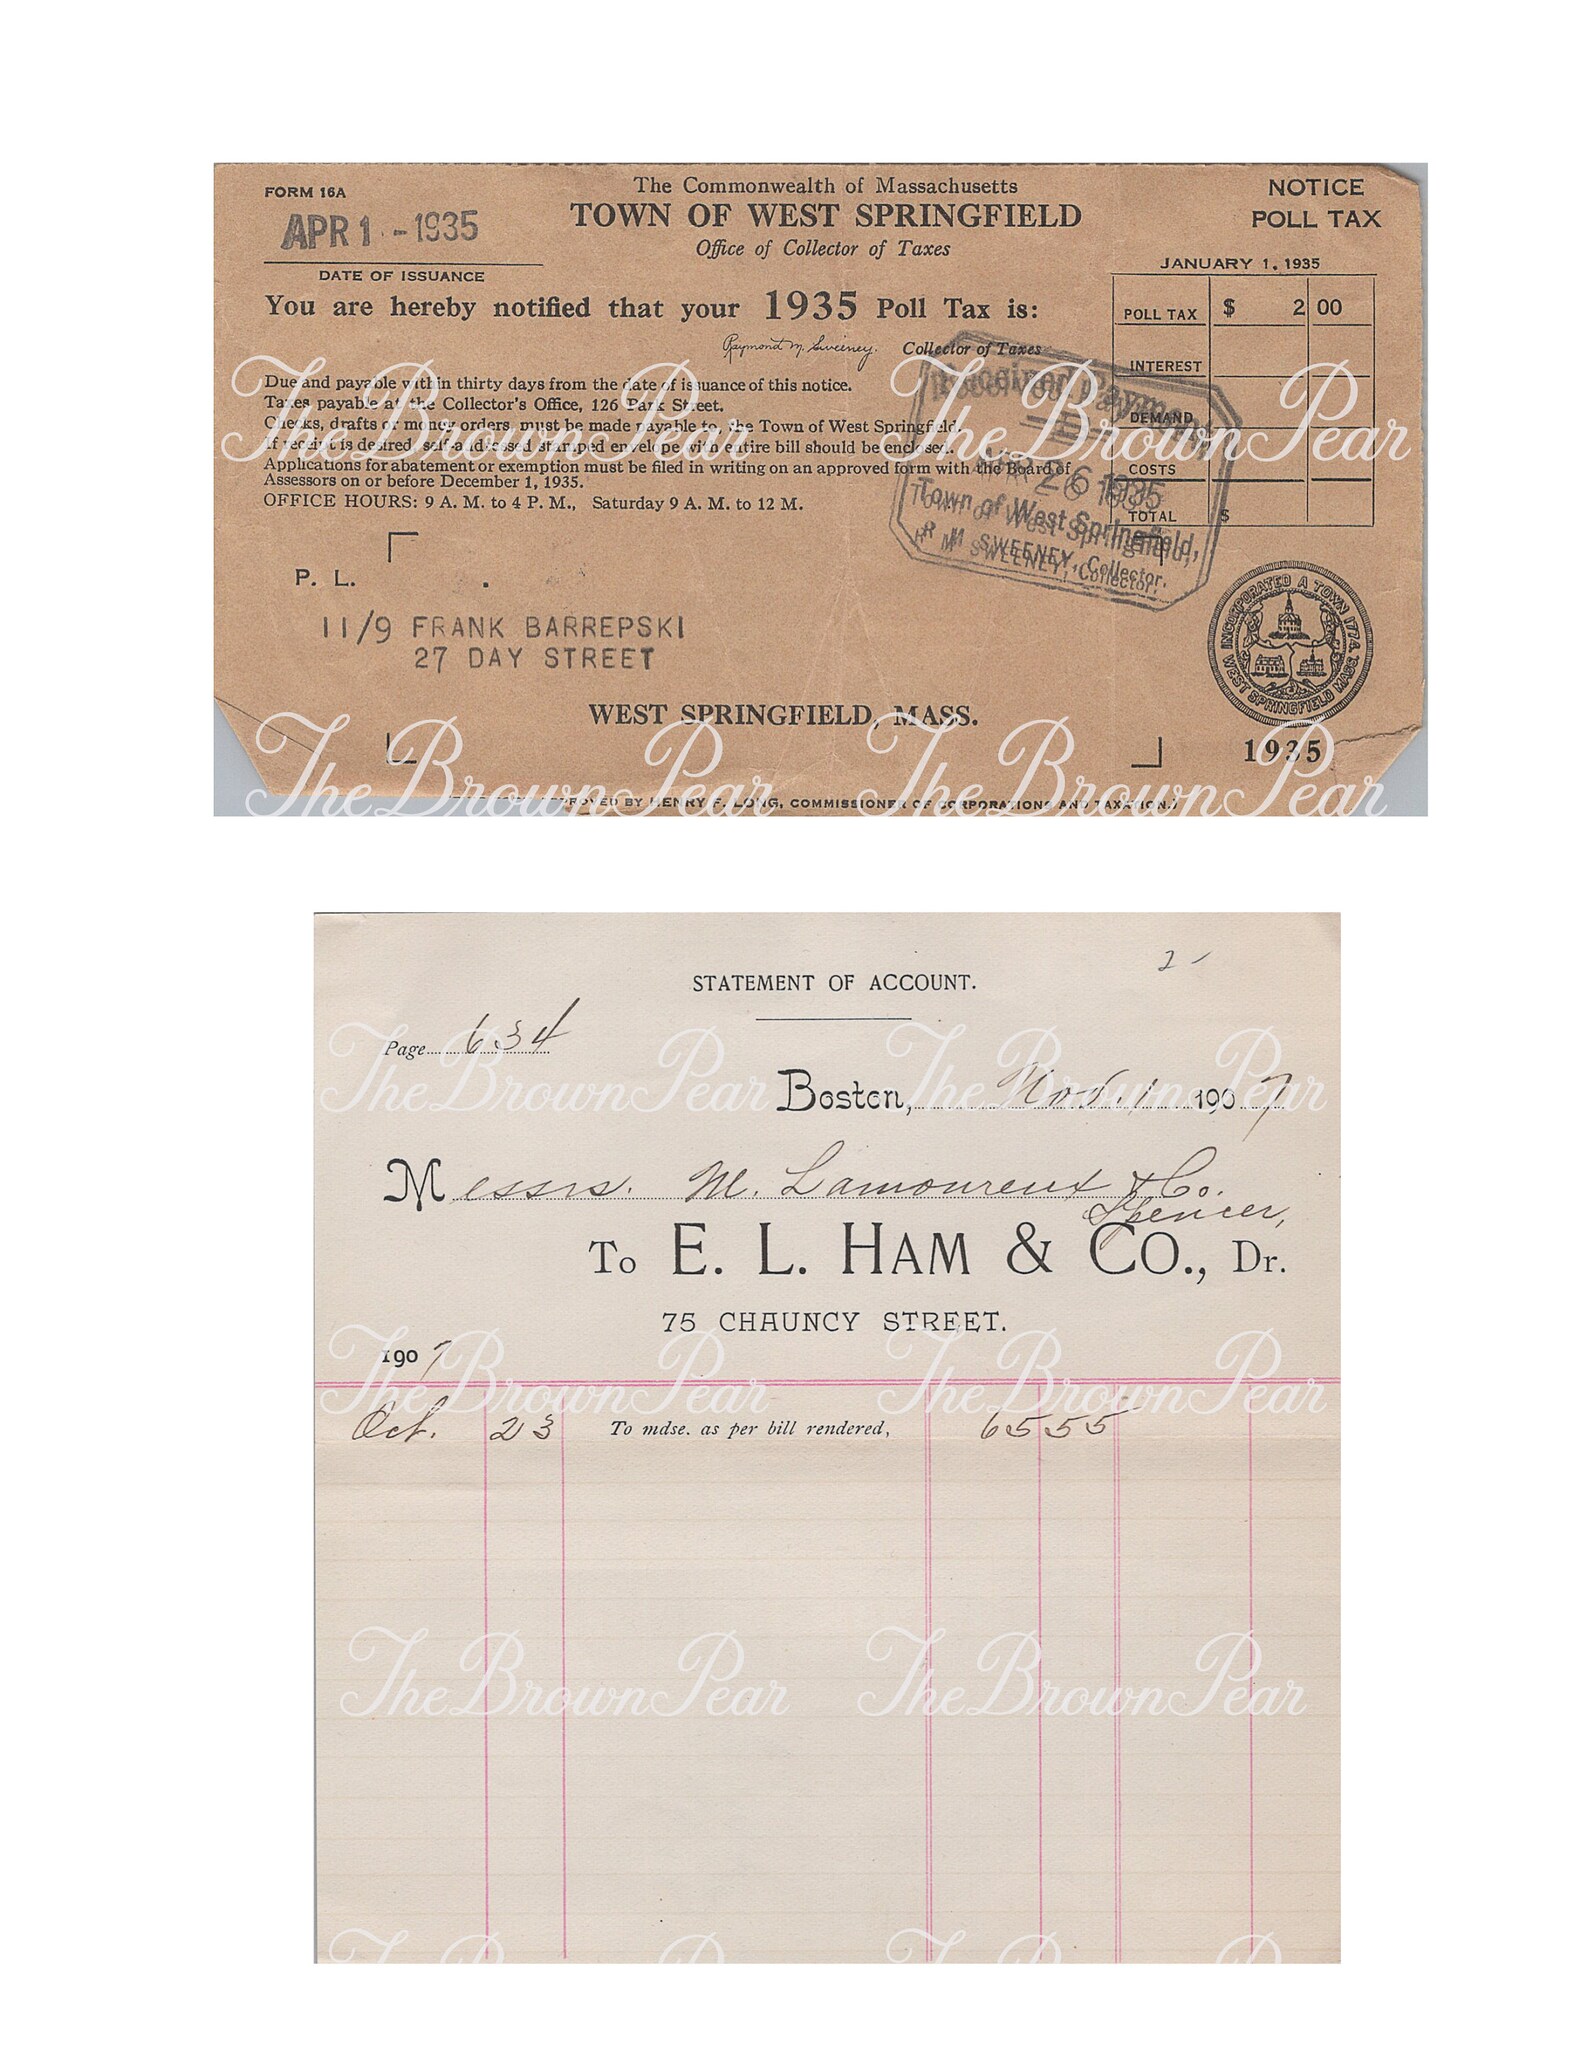 FORM 16A
APR 1 - 1935
DATE OF ISSUANCE
The Commonwealth of Massachusetts
TOWN OF WEST SPRINGFIELD
Office of Collector of Taxes
NOTICE
POLL TAX
JANUARY 1, 1935
You are hereby notified that your 1935 Poll Tax is:
POLL TAX $ 2 00
INTEREST
DEMAND
COSTS
TOTAL $
Raymond M. Sweeney. Collector of Taxes
Due and payable within thirty days from the date of issuance of this notice.
Taxes payable at the Collector's Office, 126 Park Street.
Checks, drafts or money orders must be made payable to the Town of West Springfield.
If receipt is desired, self-addressed stamped envelope with entire bill should be enclosed.
Applications for abatement or exemption must be filed in writing on an approved form with the Board of
Assessors on or before December 1, 1935.
OFFICE HOURS: 9 A. M. to 4 P. M., Saturday 9 A. M. to 12 M.
Received Payment
26 1935
Town of West Springfield,
R M SWEENEY, Collector.
P. L.
11/9 FRANK BARREPSKI
27 DAY STREET
WEST SPRINGFIELD, MASS.
INCORPORATED A TOWN 1774
WEST SPRINGFIELD MASS.
1935
APPROVED BY HENRY F. LONG, COMMISSIONER OF CORPORATIONS AND TAXATION.)
The Brown Pear The Brown Pear
The Brown Pear The Brown Pear
2 -
STATEMENT OF ACCOUNT.
Page 634
Boston, Nov. 1 1907
Messrs. M. Lamoureux & Co.
Spencer,
To E. L. HAM & CO., Dr.
75 CHAUNCY STREET.
1907
Oct. 23 To mdse. as per bill rendered, 65 55
The Brown Pear The Brown Pear
The Brown Pear The Brown Pear
The Brown Pear The Brown Pear